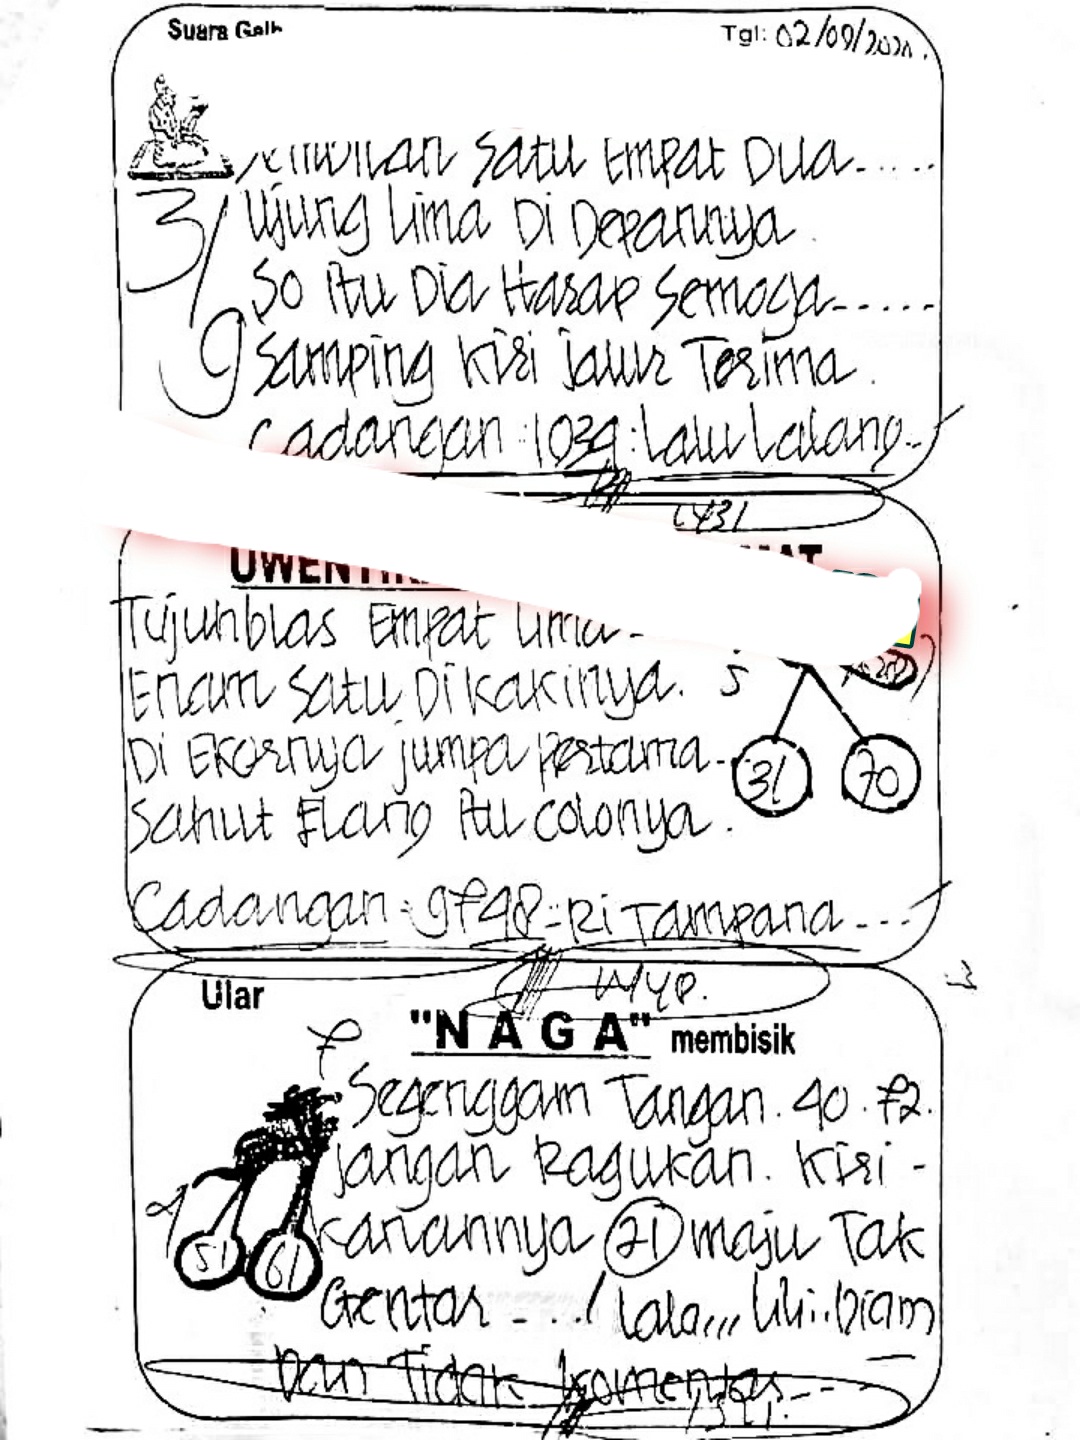 Suara
Tgl: 02/09/2021.
Satu Empat Dua.....
3/9
Ujung Lima Di Depannya.
So Itu Dia Harap Semoga.....
Samping Kiri jalur Terima.
Cadangan : 1039 : Lalu Lalang..
Tujuhblas Empat Lima -
Enam Satu Dikakinya.
5
Di Ekornya jumpa Pertama..
31 70
Sahut Elang Itu Colonya.
Cadangan : 9748 = Ri Tampana ...
Ular
"NAGA" membisik
7
Segenggam Tangan. 40. 72.
jangan Ragukan. Kiri -
Kanannya 21 maju Tak
51 61
Gentar ...! Lala,,, Lili.. Diam
Dan Tidak Komentar...